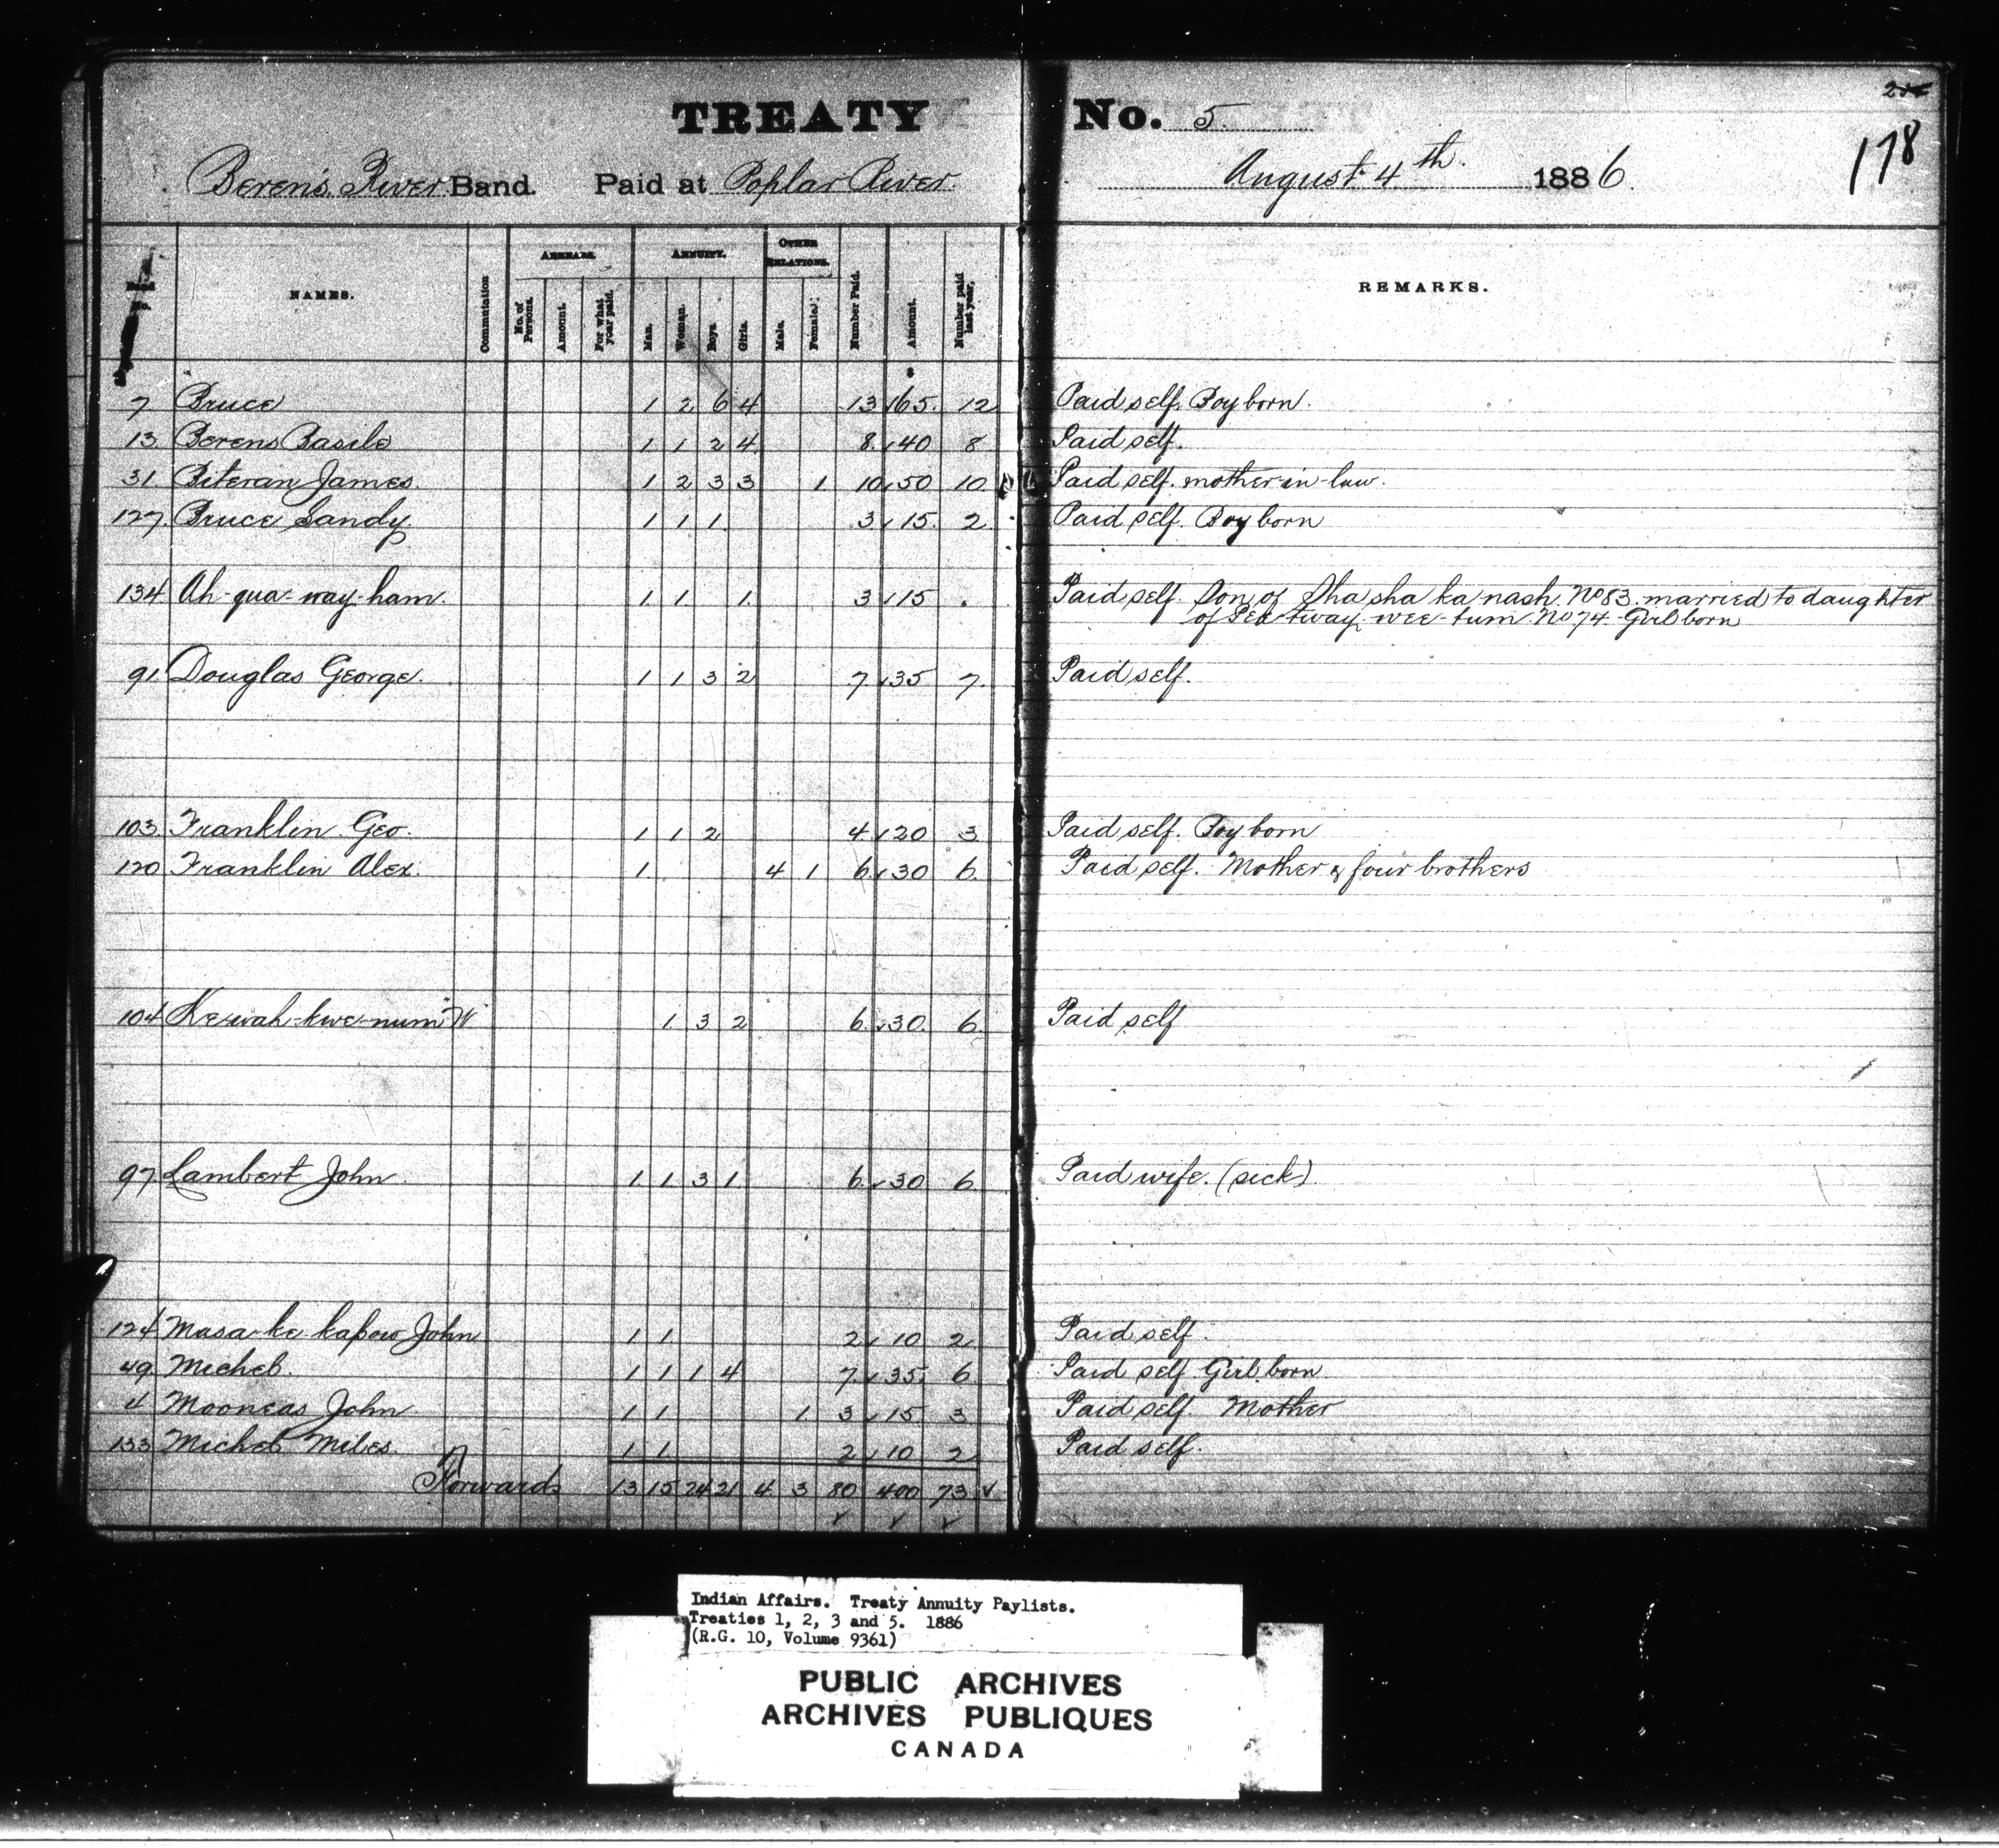 TREATY No. 5
178
Berens River Band. Paid at Poplar River August 4th 1886.
Band No. NAMES. Commutation ARREARS. No. of Persons. Amount. For what year paid. ANNUITY. Man. Woman. Boys. Girls. OTHER RELATIONS. Male. Female. Number Paid. Amount. Number paid last year. REMARKS.
7 Bruce 1 2 6 4 13 165. 12 Paid self. Boy born.
13 Berens Basile 1 1 2 4 8. 40 8 Paid self.
31. Biteran James. 1 2 3 3 1 10 50 10 Paid self. mother-in-law.
127 Bruce Sandy. 1 1 1 3 15. 2 Paid self. Boy born
134 Ah-qua-way-ham. 1 1 1. 3 15 . Paid self. Son of Sha sha ka nash. No 83. married to daughter
of tway wee-tum. No 74. Girl born
91. Douglas George. 1 1 3 2 7 35 7. Paid self.
103. Franklin Geo. 1 1 2 4 20 3 Paid self. Boy born
120 Franklin Alex. 1 4 1 6. 30 6. Paid self. Mother & four brothers
104 Ke-wah-kwe-num W 1 3 2 6. 30. 6. Paid self
97 Lambert John 1 1 3 1 6. 30 6 Paid wife. (sick)
124 Masa-ke kapow John 1 1 2 10 2 Paid self.
49 Michel. 1 1 1 4 7 35. 6 Paid self Girl born
4 Mooneas John 1 1 1 3 15 3 Paid self. Mother
133 Michel Miles. 1 1 2 10 2 Paid self.
Forwards 13 15 24 21 4 3 80 400 73 ✓
✓ ✓ ✓
Indian Affairs. Treaty Annuity Paylists.
Treaties 1, 2, 3 and 5. 1886
(R.G. 10, Volume 9361)
PUBLIC ARCHIVES
ARCHIVES PUBLIQUES
CANADA